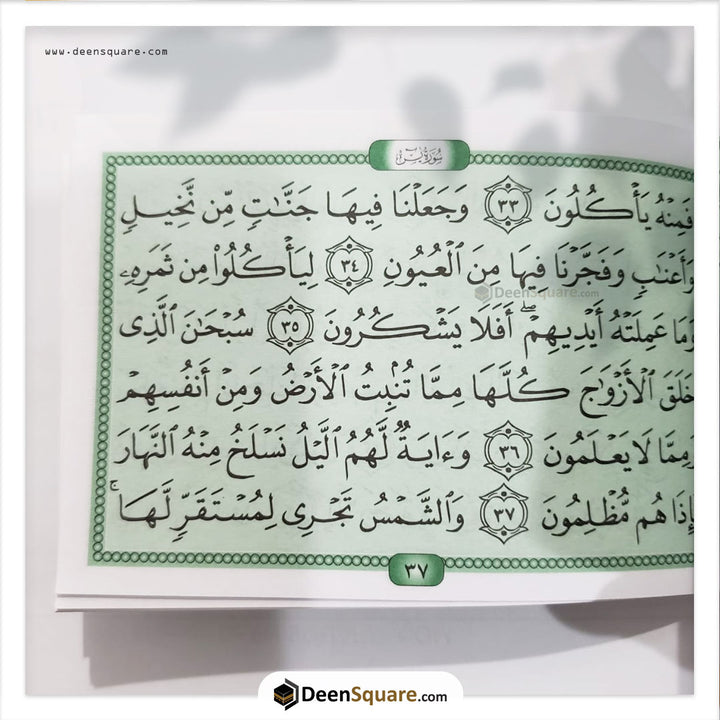 www.deensquare.com
سُورَةُ يسٓ
فَمِنۡهُ يَأۡكُلُونَ ٣٣ وَجَعَلۡنَا فِيهَا جَنَّٰتٖ مِّن نَّخِيلٖ
وَأَعۡنَٰبٖ وَفَجَّرۡنَا فِيهَا مِنَ ٱلۡعُيُونِ ٣٤ لِيَأۡكُلُواْ مِن ثَمَرِهِۦ
DeenSquare.com
وَمَا عَمِلَتۡهُ أَيۡدِيهِمۡۚ أَفَلَا يَشۡكُرُونَ ٣٥ سُبۡحَٰنَ ٱلَّذِي
خَلَقَ ٱلۡأَزۡوَٰجَ كُلَّهَا مِمَّا تُنۢبِتُ ٱلۡأَرۡضُ وَمِنۡ أَنفُسِهِمۡ
وَمِمَّا لَا يَعۡلَمُونَ ٣٦ وَءَايَةٞ لَّهُمُ ٱلَّيۡلُ نَسۡلَخُ مِنۡهُ ٱلنَّهَارَ
فَإِذَا هُم مُّظۡلِمُونَ ٣٧ وَٱلشَّمۡسُ تَجۡرِي لِمُسۡتَقَرّٖ لَّهَاۚ
٣٧
DeenSquare.com